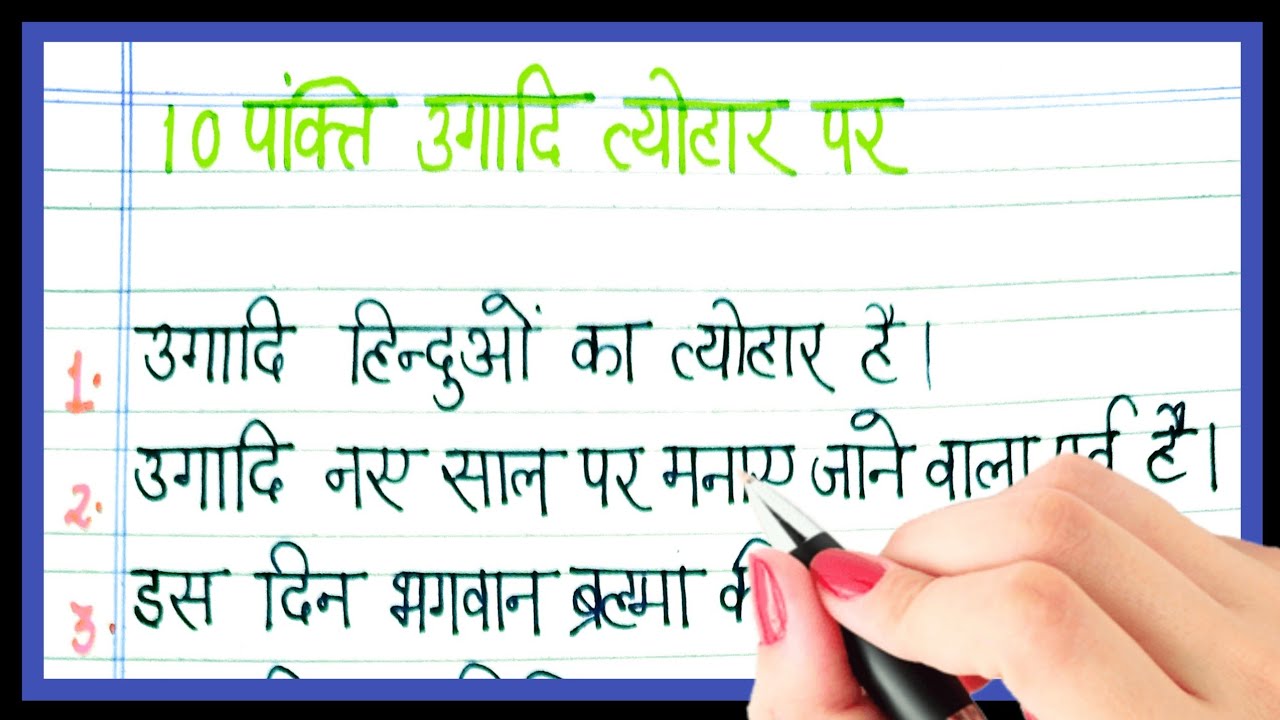 10 पंक्ति उगादि त्योहार पर
1. उगादि हिन्दुओं का त्योहार है।
2. उगादि नए साल पर मनाए जाने वाला पर्व है।
3. इस दिन भगवान ब्रह्मा की